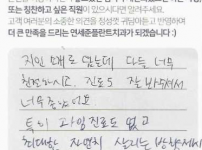 또는 칭찬하고 싶은 직원이 있으시다면 알려주세요.
고객 여러분의 소중한 의견을 정성껏 귀담아듣고 반영하여
더 큰 만족을 드리는 연세준플란트치과가 되겠습니다 :)
지인 소개로 왔는데 다들 너무
친절하시고, 진료도 잘 봐주셔서
너무 좋았어요
특히 과잉진료도 없고
최대한 자연치 살리는 방향에서